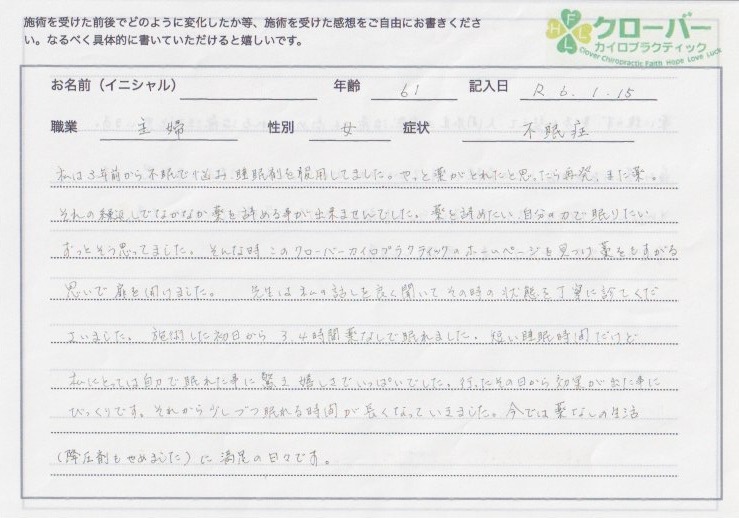 施術を受けた前後でどのように変化したか等、施術を受けた感想をご自由にお書きくださ
い。なるべく具体的に書いていただけると嬉しいです。
HFLL
クローバー
カイロプラクティック
Clover Chiropractic Faith Hope Love Luck
お名前（イニシャル） 年齢 61 記入日 R 6.1.15
職業 主婦 性別 女 症状 不眠症
私は3年前から不眠で悩み、睡眠剤を服用してました。やっと薬がとれたと思ったら再発、また薬。
それの繰返しでなかなか薬を辞める事が出来ませんでした。薬を辞めたい、自分の力で眠りたい
ずっとそう思ってました。そんな時このクローバーカイロプラクティックのホームページを見つけ藁をもすがる
思いで扉を開けました。 先生は私の話しを良く聞いてその時の状態を丁寧に診てくだ
さいました。施術した初日から3,4時間薬なしで眠れました。短い睡眠時間だけど
私にとっては自力で眠れた事に驚き嬉しさでいっぱいでした。行ったその日から効果が出た事に
びっくりです。それから少しづつ眠れる時間が長くなっていきました。今では薬なしの生活
(降圧剤もやめました)に満足の日々です。